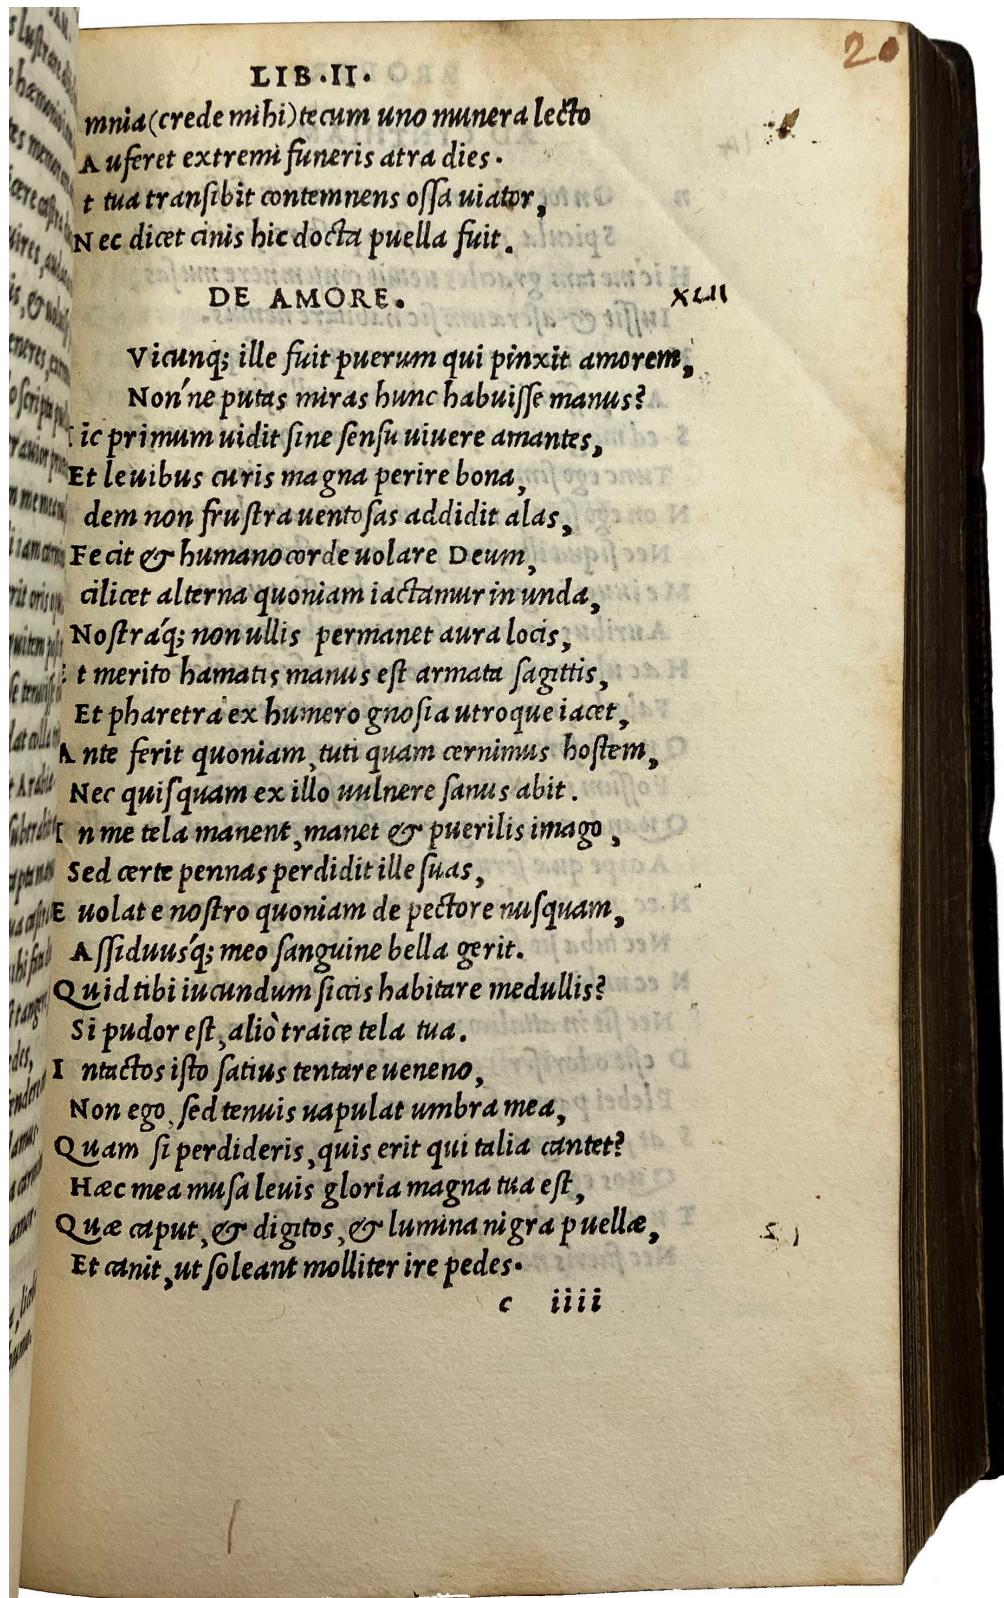 20
LIB.II.
mnia(crede mihi)tecum uno munera lecto
Auferet extremi funeris atra dies.
t tua transibit contemnens ossa uiator,
Nec dicet cinis hic docta puella fuit.
DE AMORE. XLII
Vicunq; ille fuit puerum qui pinxit amorem,
Non'ne putas miras hunc habuisse manus?
ic primum uidit sine sensu uiuere amantes,
Et leuibus curis magna perire bona,
dem non frustra uentosas addidit alas,
Fecit & humano corde uolare Deum,
cilicet alterna quoniam iactamur in unda,
Nostra'q; non ullis permanet aura locis,
t merito hamatis manus est armata sagittis,
Et pharetra ex humero gnosia utroque iacet,
Ante ferit quoniam, tuti quam cernimus hostem,
Nec quisquam ex illo uulnere sanus abit.
In me tela manent, manet & puerilis imago,
Sed certe pennas perdidit ille suas,
Euolat e nostro quoniam de pectore nusquam,
Assiduus'q; meo sanguine bella gerit.
Quid tibi iucundum siccis habitare medullis?
Si pudor est, aliò traice tela tua.
Intactos isto satius tentare ueneno,
Non ego, sed tenuis uapulat umbra mea,
Quam si perdideris, quis erit qui talia cantet?
Hæc mea musa leuis gloria magna tua est,
Quæ caput, & digitos, & lumina nigra puellæ,
Et canit, ut soleant molliter ire pedes.
c iiii